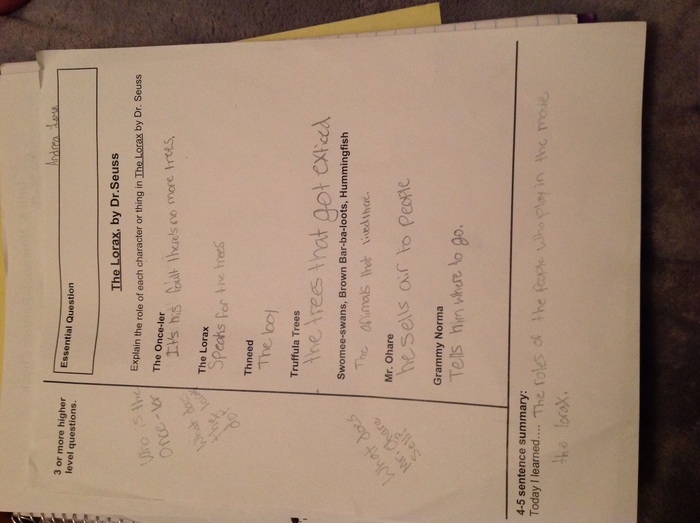 Andrea
Essential Question
3 or more higher
level questions.
The Lorax, by Dr.Seuss
Explain the role of each character or thing in The Lorax by Dr. Seuss
The Once-ler
It's his fault there's no more trees.
who is the
once-ler
The Lorax
Speaks for the trees
what does
the
do
Thneed
The boy
Truffula Trees
the trees that got exticed
Swomee-swans, Brown Bar-ba-loots, Hummingfish
The animals that lived there.
Mr. Ohare
he sells air to people
what does
Mr. Ohare
Sell
Grammy Norma
Tells him where to go.
4-5 sentence summary:
Today I learned.... The roles of the people who play in the movie
the lorax.